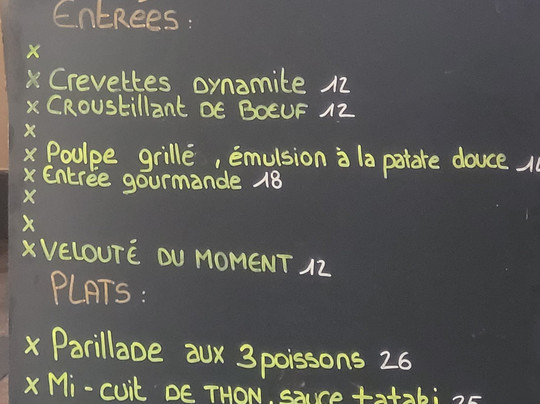 Entrées :
x
x Crevettes Dynamite 12
x Croustillant de Boeuf 12
x
x Poulpe grillé , émulsion à la patate douce
x Entrée gourmande 18
x
x
x VELOUTÉ DU MOMENT 12
PLATS :
x Parillade aux 3 poissons 26
x Mi-cuit DE THON, sauce tataki 25